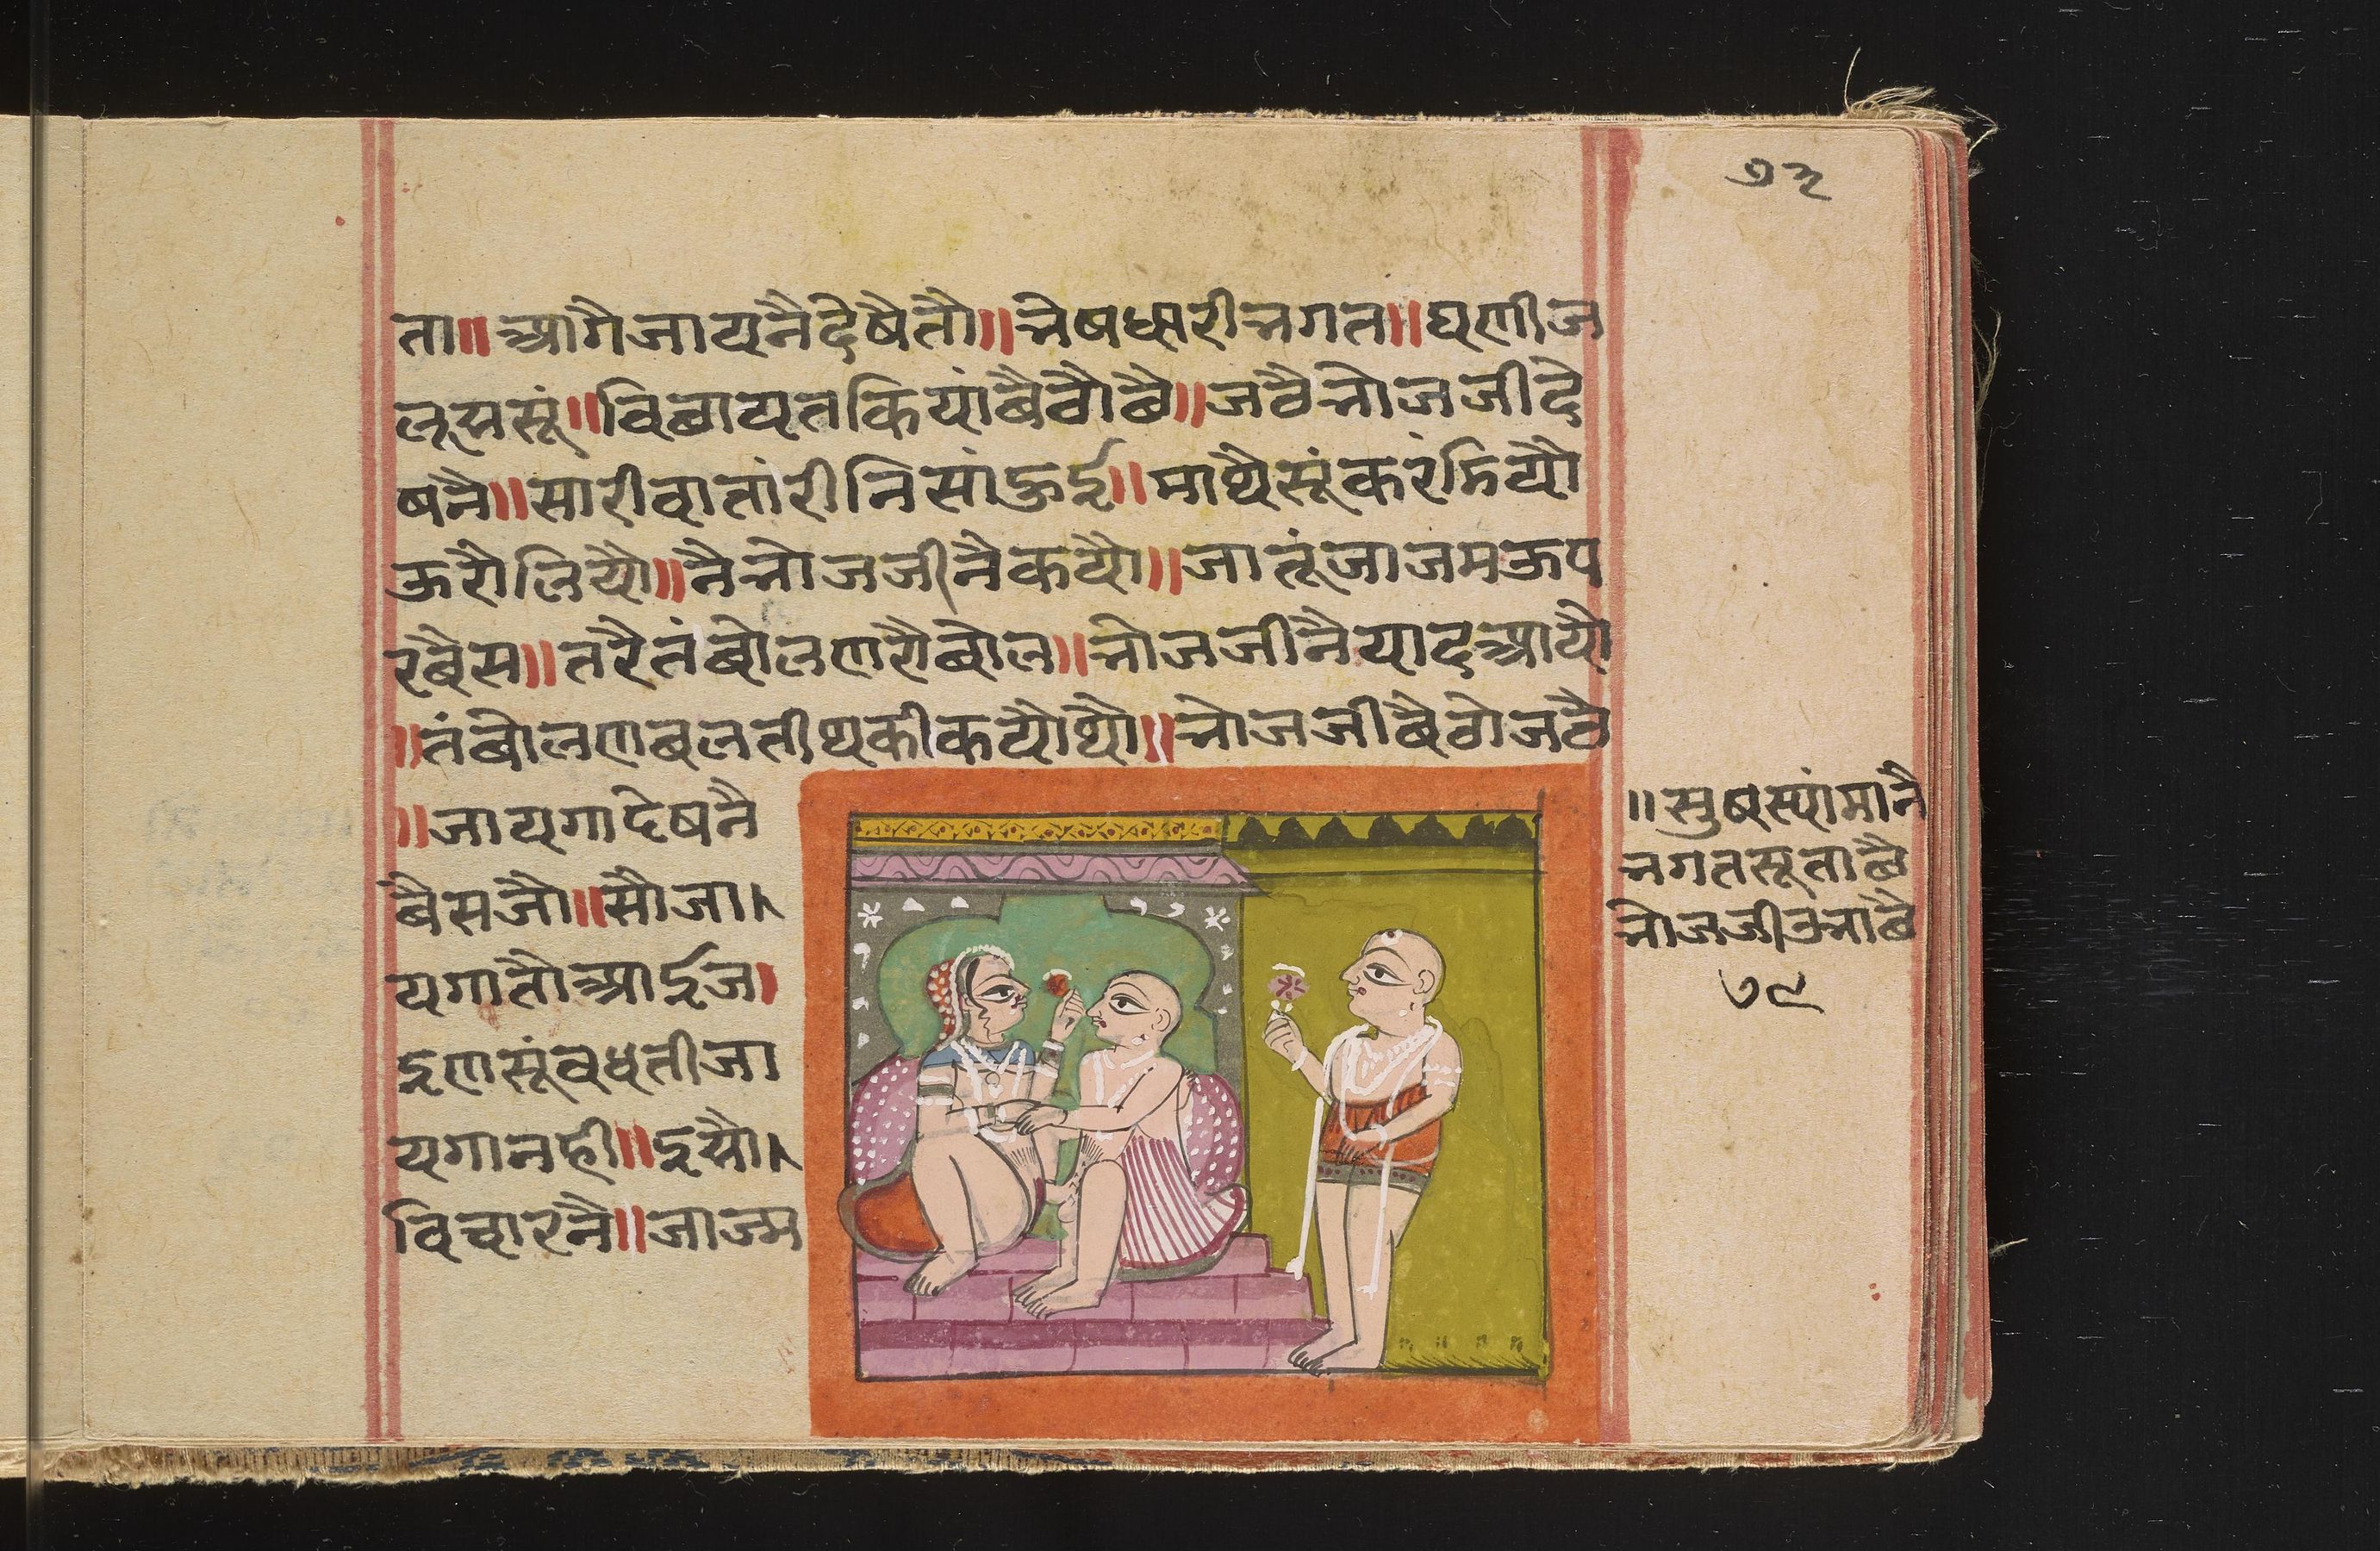 ७३
ता॥ आगै जाय नै देषै तौ॥ भेषधारी भगत॥ घणी ज
लूमसूं॥ विछायत कियां बैठौ छै॥ जठै भोजजी दे
षनै॥ सारी वातां री निसां हुई॥ माथै सूं करंमियौ
ऊरौ लियौ॥ नै भोजजी नै कयौ॥ जा तूं जा जम ऊप
र बैस॥ तरै तंबोलण रौ बोल॥ भोजजी नै याद आयौ
॥ तंबोलण बलती थकी कयौ थौ॥ भोजजी बैठो ज छै
॥ जायगा देष नै
बैसजौ॥ सौ जा
यगा तौ आईज
इण सूं वधती जा
यगा नही॥ इसौ
विचार नै॥ जाज्म
॥ सुष स्यांमा नै
भगत सूता छै
भोजजी ऊभा छै
७९